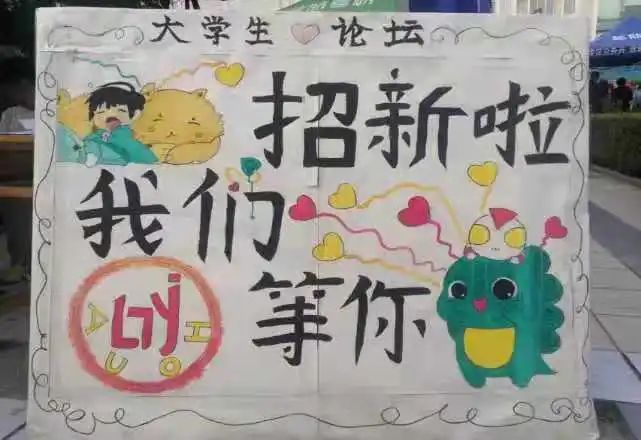 大学生论坛
招新啦
我们
等你